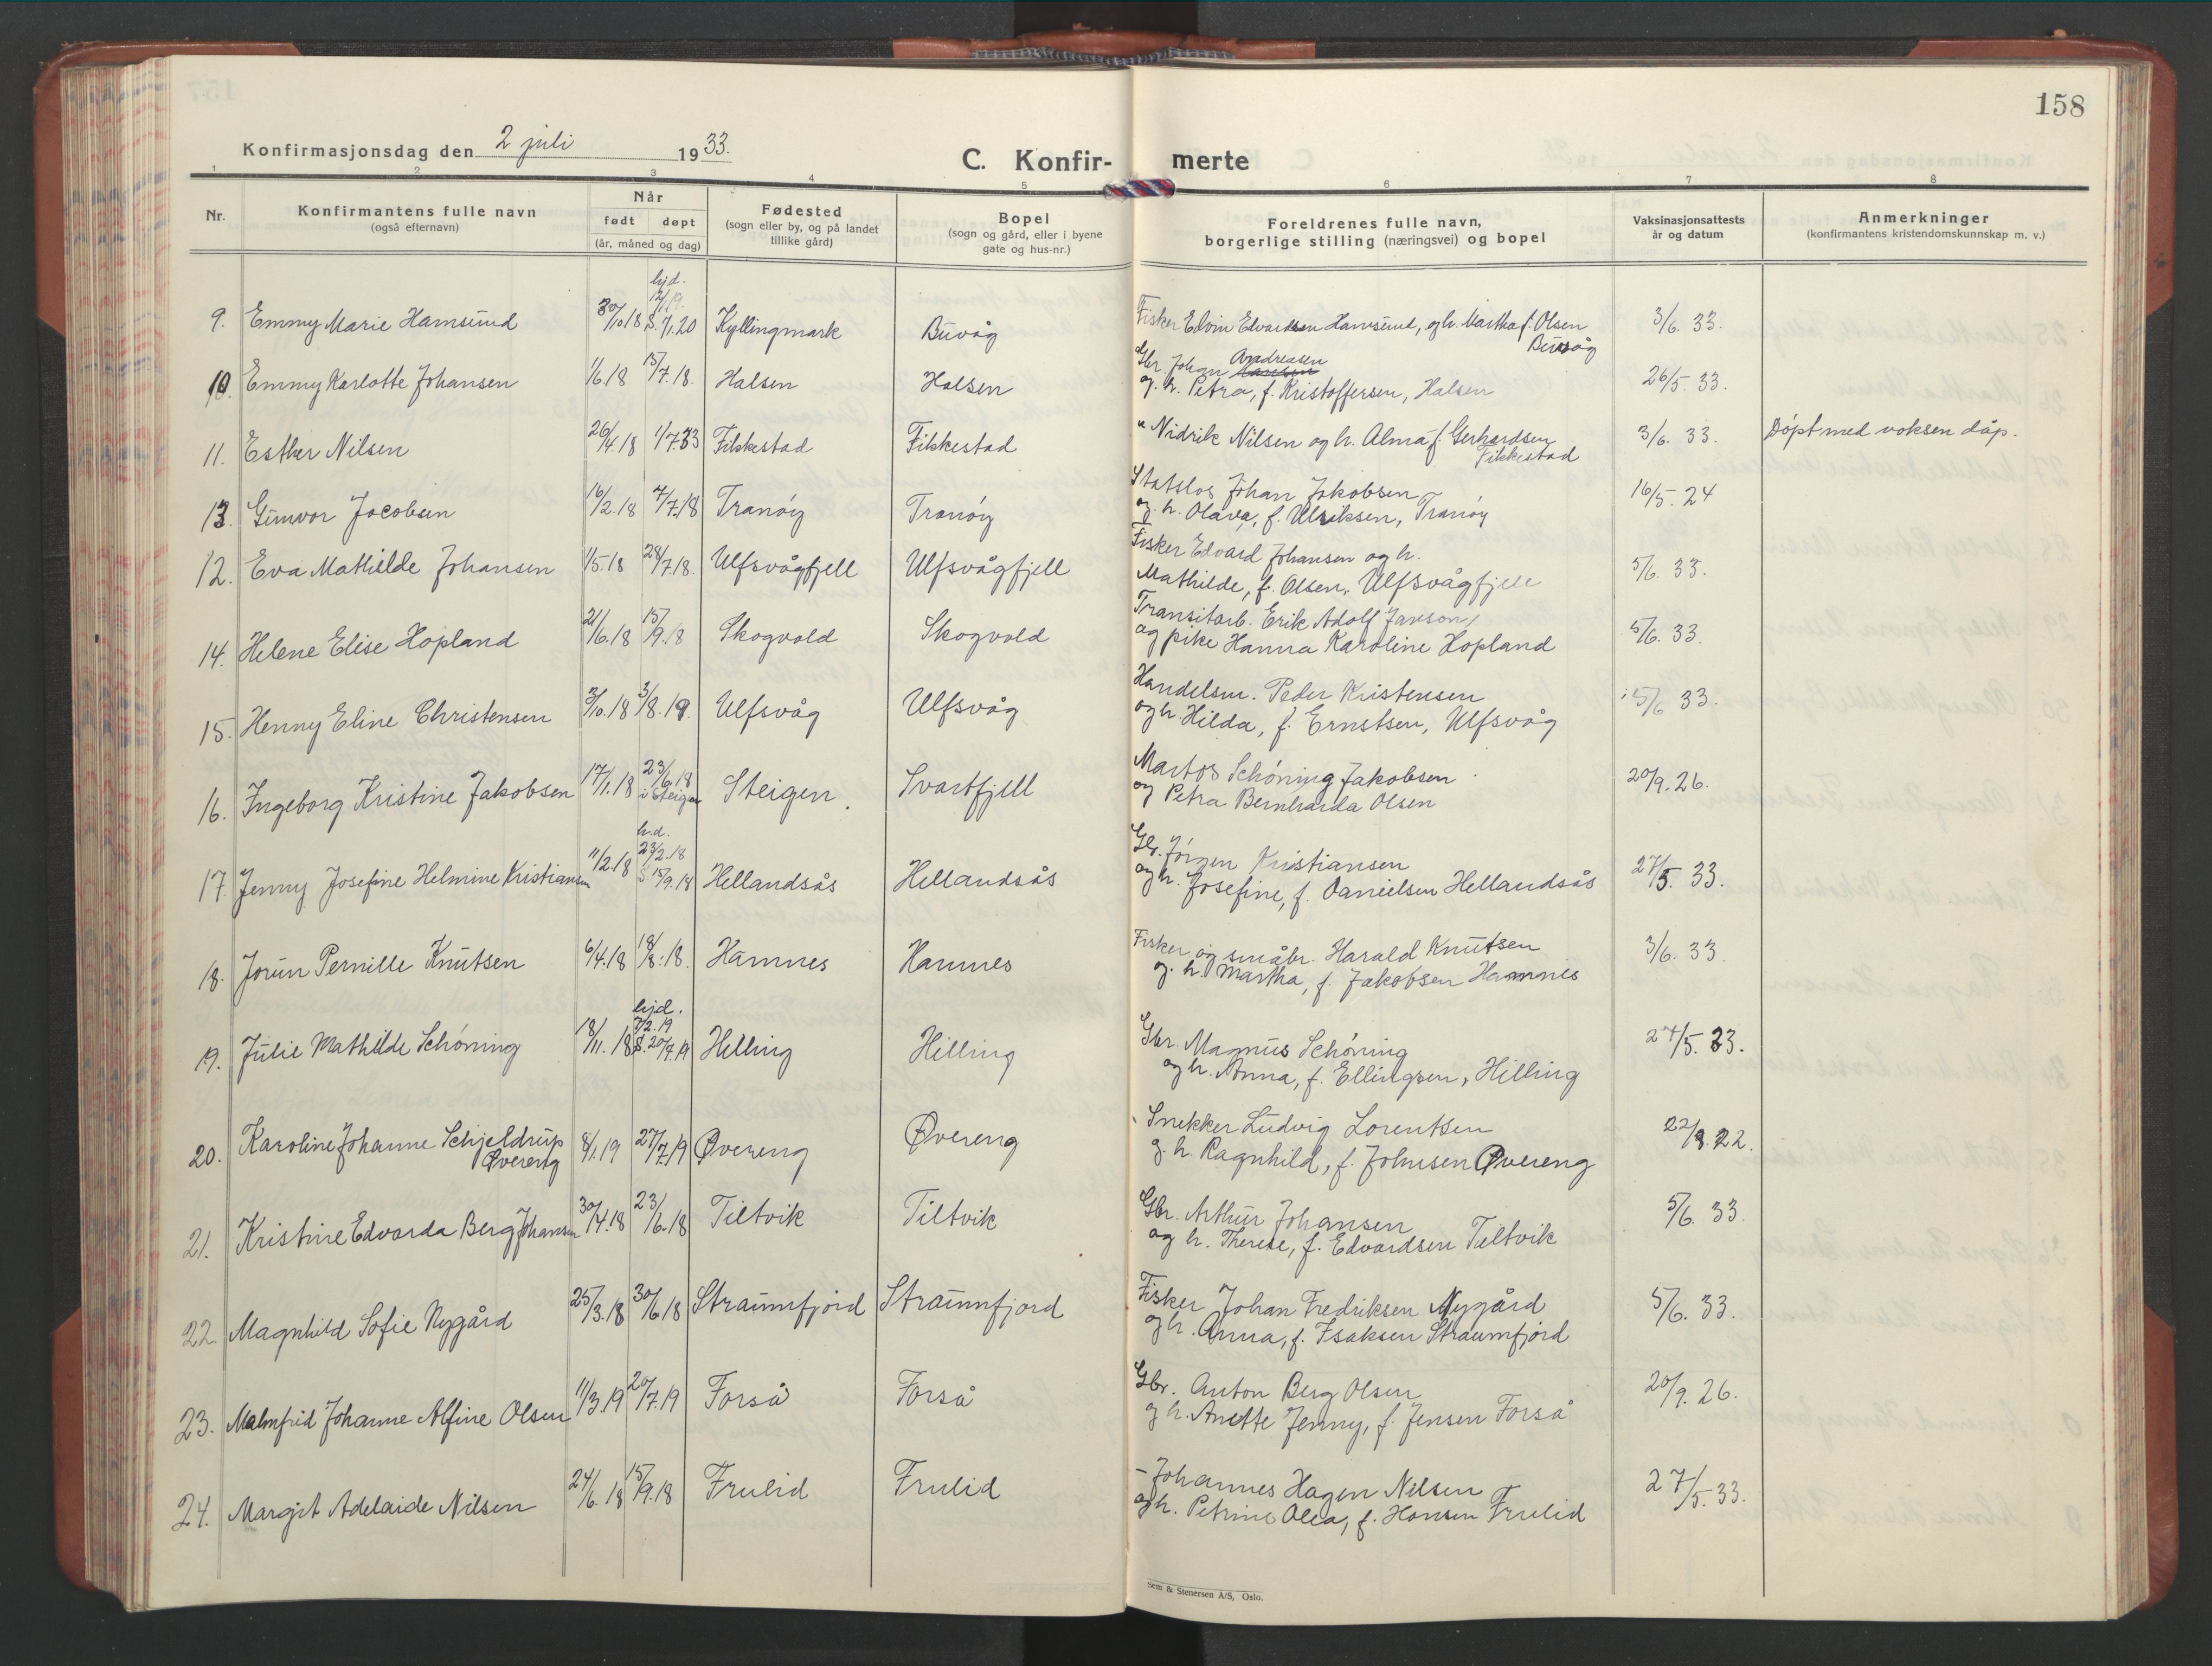 158
Konfirmasjonsdag den 2 juli 1933.
C. Konfir- merte
1 2 3 4 5 6 7 8
Nr.
Konfirmantens fulle navn
(også efternavn)
Når
født døpt
(år, måned og dag)
Fødested
(sogn eller by, og på landet
tillike gård)
Bopel
(sogn og gård, eller i byene
gate og hus-nr.)
Foreldrenes fulle navn,
borgerlige stilling (næringsvei) og bopel
Vaksinasjonsattests
år og datum
Anmerkninger
(konfirmantens kristendomskunnskap m. v.)
hjd.
9. Emmy Marie Hamsund 30/10 18 S. 1/1.20 Kyllingmark Buvåg Fisker Edvin Edvardsen Hamsund, og h. Martha f. Olsen 3/6. 33.
Buvåg
10. Emmy Karlotte Johansen 1/6.18 15/7.18. Halsen Halsen Gbr. Johan Andreasen 26/5. 33.
og h. Petra, f. Kristoffersen, Halsen
11. Esther Nilsen 26/4.18 1/7.33 Fikkestad Fikkestad " Nidrik Nilsen og h. Alma f. Gerhardsen 3/6. 33. Döpt med voksen dåp.
Fikkestad
13. Gunvor Jacobsen 16/2.18 7/7.18 Tranöy Tranöy Statslos Johan Jakobsen 16/5. 24
og h. Olava, f. Ulriksen, Tranöy
12. Eva Mathilde Johansen 1/5.18 28/7.18. Ulfsvågfjell Ulfsvågfjell Fisker Edvard Johansen og h. 5/6. 33.
Mathilde, f. Olsen, Ulfsvågfjell
14. Helene Elise Hopland 21/6.18 15/9.18 Skogvold Skogvold Transitarb. Erik Adolf Janson, 5/6. 33.
og pike Hanna Karoline Hopland
15. Henny Eline Christensen 3/10.18 3/8.19. Ulfsvåg Ulfsvåg Handelsm. Peder Kristensen 5/6 33.
og h. Hilda, f. Ernstsen, Ulfsvåg
16. Ingeborg Kristine Jakobsen 17/1.18 23/6.18 Steigen. Svartfjell Martos Schöning Jakobsen 20/9.26.
i Steigen og Petra Bernharda Olsen
h.d.
23/2.18
17. Jenny Josefine Helmine Kristiansen 11/2.18 S 15/9.18 Hellandsås Hellandsås Gbr. Jörgen Kristiansen 27/5. 33.
og h. Josefine, f. Danielsen Hellandsås
18. Jorun Pernille Knutsen 6/4.18 18/8.18. Hamnes Hamnes Fisker og småbr. Harald Knutsen 3/6. 33
og h. Martha, f. Jakobsen Hamnes
hjd.
7/2.19
19. Julie Mathilde Schöning 18/11.18 S. 20/7.19 Helling Helling Gbr. Magnus Schöning 27/5. 33.
og h. Anna, f. Ellingsen, Hilling
20. Karoline Johanne Schjeldrup 8/1.19 27/7.19 Øvereng Øvereng Snekker Ludvig Lorentsen 22/8.22.
Øvereng og h. Ragnhild, f. Johnsen Øvereng
21. Kristine Edvarda Berg Johansen 30/4.18 23/6.18 Tiltvik Tiltvik Gbr. Arthur Johansen 5/6. 33.
og h. Therese, f. Edvardsen Tiltvik
22. Magnhild Sofie Nygård 25/3.18 30/6 18 Straumfjord Straumfjord Fisker Johan Fredriksen Nygård 5/6. 33.
og h. Anna, f. Isaksen Straumfjord
23. Malmfrid Johanne Alfine Olsen 11/3.19 20/7.19 Forså Forså Gbr. Anton Berg Olsen 20/9. 26.
og h. Anette Jenny, f. Jensen Forså
24. Margit Adelaide Nilsen 24/6.18 15/9.18 Frulid Frulid – Johannes Hagen Nilsen 27/5. 33.
og h. Petrine Olea, f. Hansen Frulid
Sem & Stenersen A/S, Oslo.